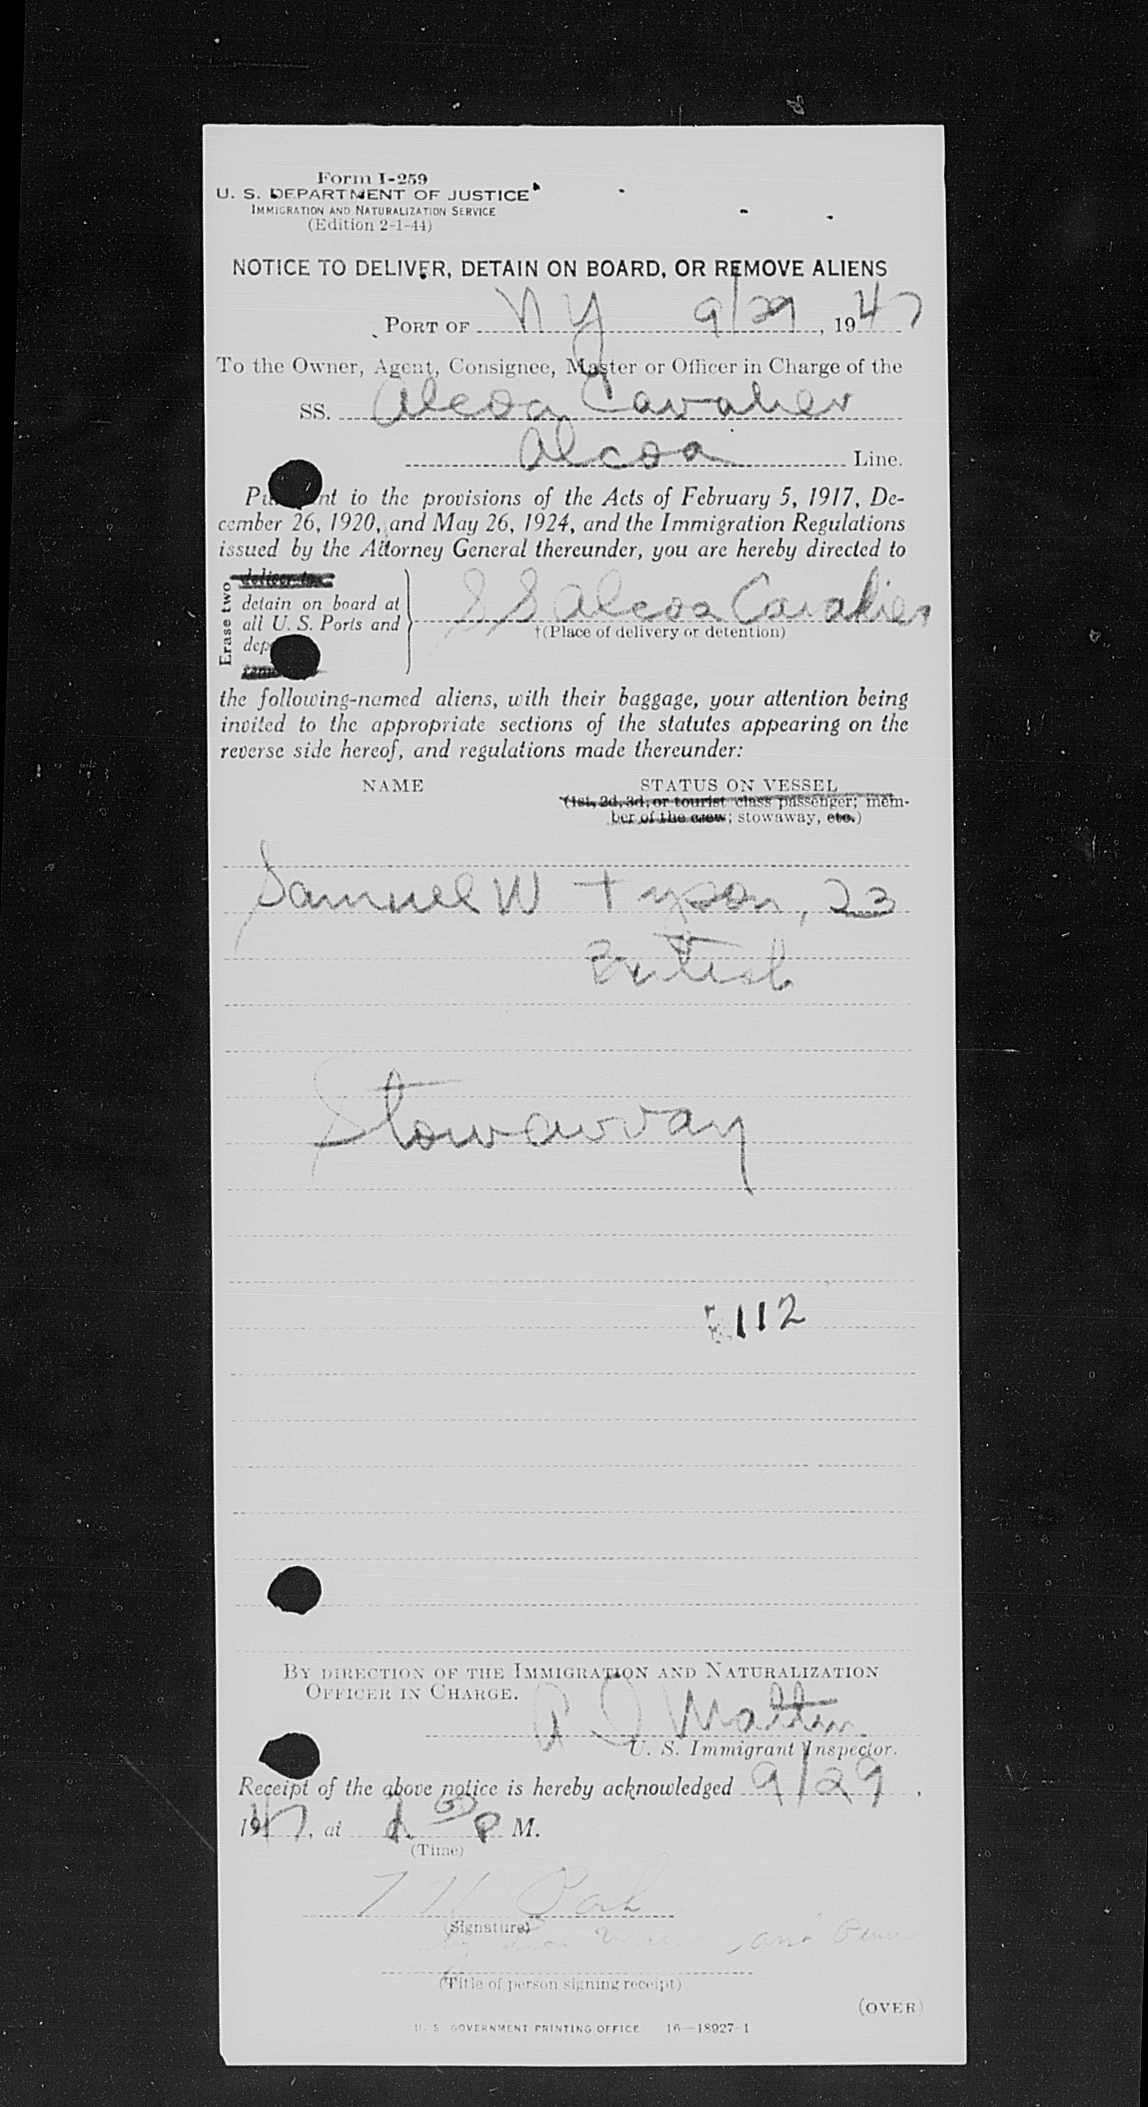 Form I-259
U. S. DEPARTMENT OF JUSTICE
IMMIGRATION AND NATURALIZATION SERVICE
(Edition 2-1-44)
NOTICE TO DELIVER, DETAIN ON BOARD, OR REMOVE ALIENS
PORT OF NY 9/29, 1947
To the Owner, Agent, Consignee, Master or Officer in Charge of the
SS. Alcoa Cavalier
Alcoa Line.
Pursuant to the provisions of the Acts of February 5, 1917, De-
cember 26, 1920, and May 26, 1924, and the Immigration Regulations
issued by the Attorney General thereunder, you are hereby directed to
Erase two
deliver to
detain on board at
all U. S. Ports and
SS Alcoa Cavalier
†(Place of delivery or detention)
the following-named aliens, with their baggage, your attention being
invited to the appropriate sections of the statutes appearing on the
reverse side hereof, and regulations made thereunder:
NAME STATUS ON VESSEL
(1st, 2d, 3d, or tourist class passenger; mem-
ber of the crew; stowaway, etc.)
Samuel W Tyson, 23
British
Stowaway
112
BY DIRECTION OF THE IMMIGRATION AND NATURALIZATION
OFFICER IN CHARGE.
U. S. Immigrant Inspector.
Receipt of the above notice is hereby acknowledged 9/29,
1947, at P M.
(Time)
(Signature)
(Title of person signing receipt)
(OVER)
U. S. GOVERNMENT PRINTING OFFICE 16—18927-1